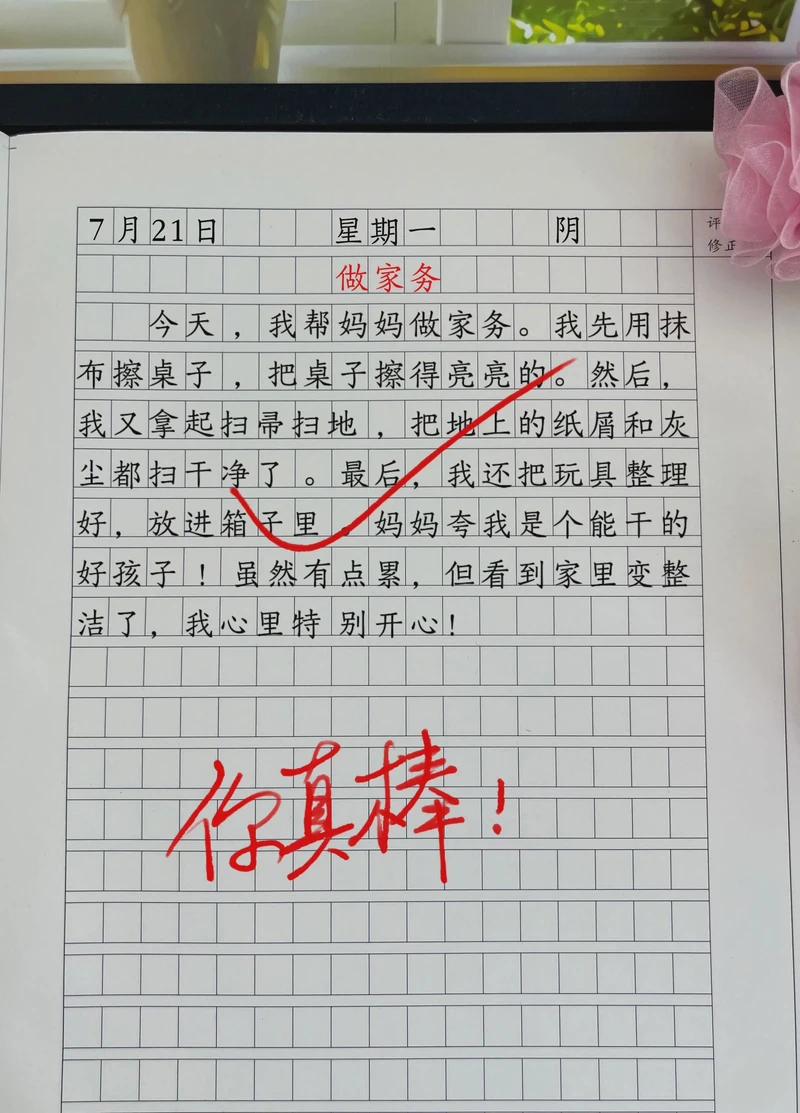 7月21日 星期一 阴
评
修正
做家务
今天，我帮妈妈做家务。我先用抹
布擦桌子，把桌子擦得亮亮的。然后，
我又拿起扫帚扫地，把地上的纸屑和灰
尘都扫干净了。最后，我还把玩具整理
好，放进箱子里。妈妈夸我是个能干的
好孩子！虽然有点累，但看到家里变整
洁了，我心里特别开心！
你真棒！